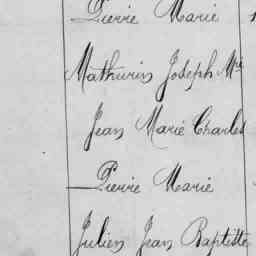 Pierre Marie
Mathurin Joseph Mie
Jean Marie Charles
Pierre Marie
Julien Jean Baptiste